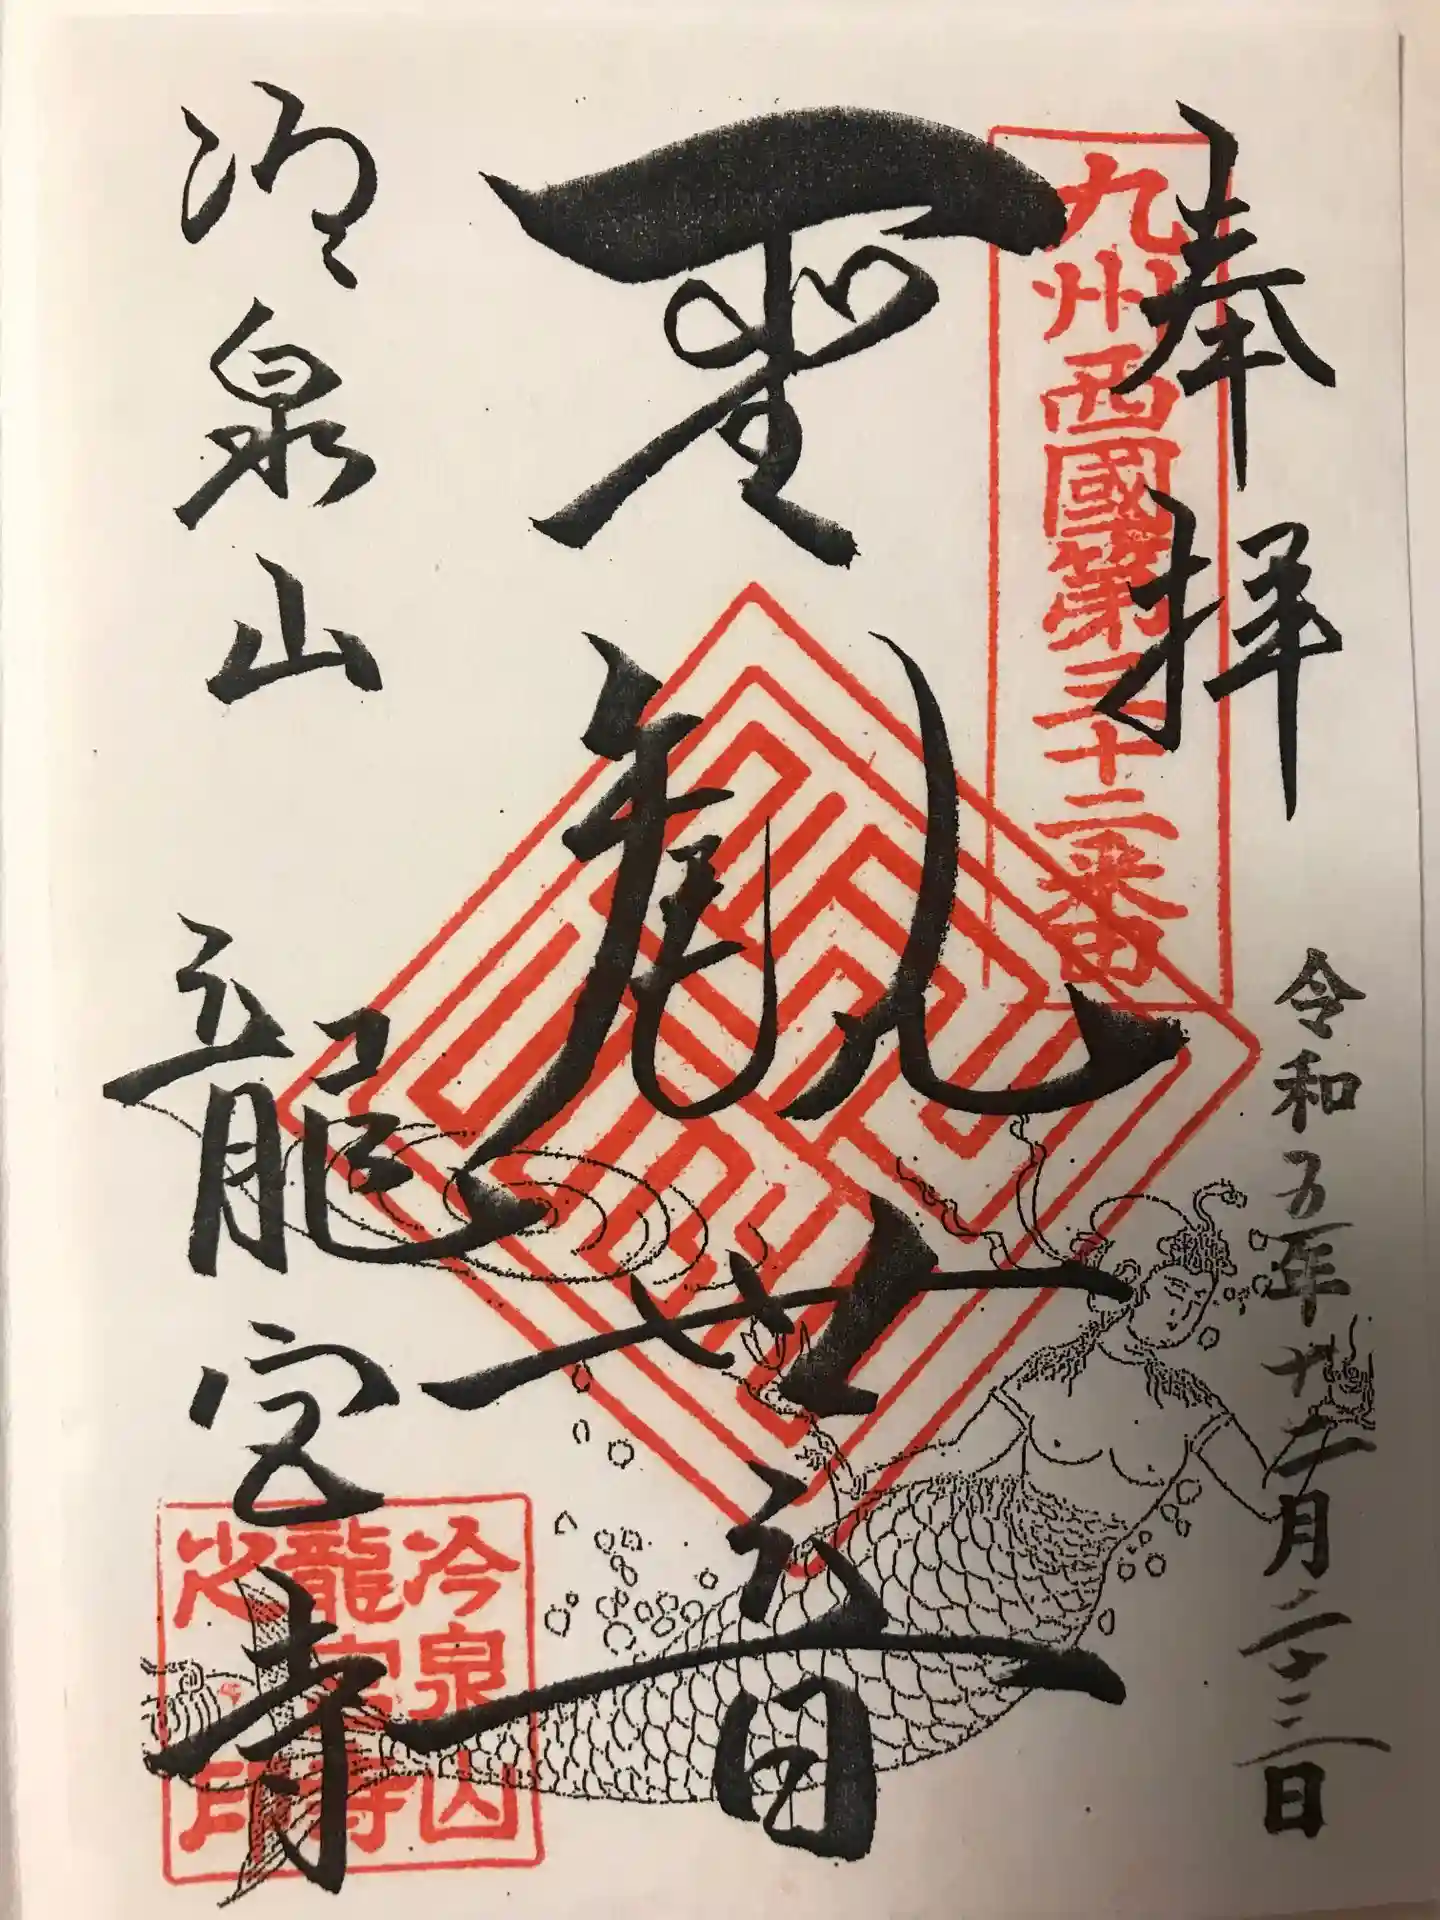 奉拝
九州西國第三十二番
令和五年十二月二十三日
聖観世音
冷泉山 龍宮寺
冷泉山
龍宮寺
之印